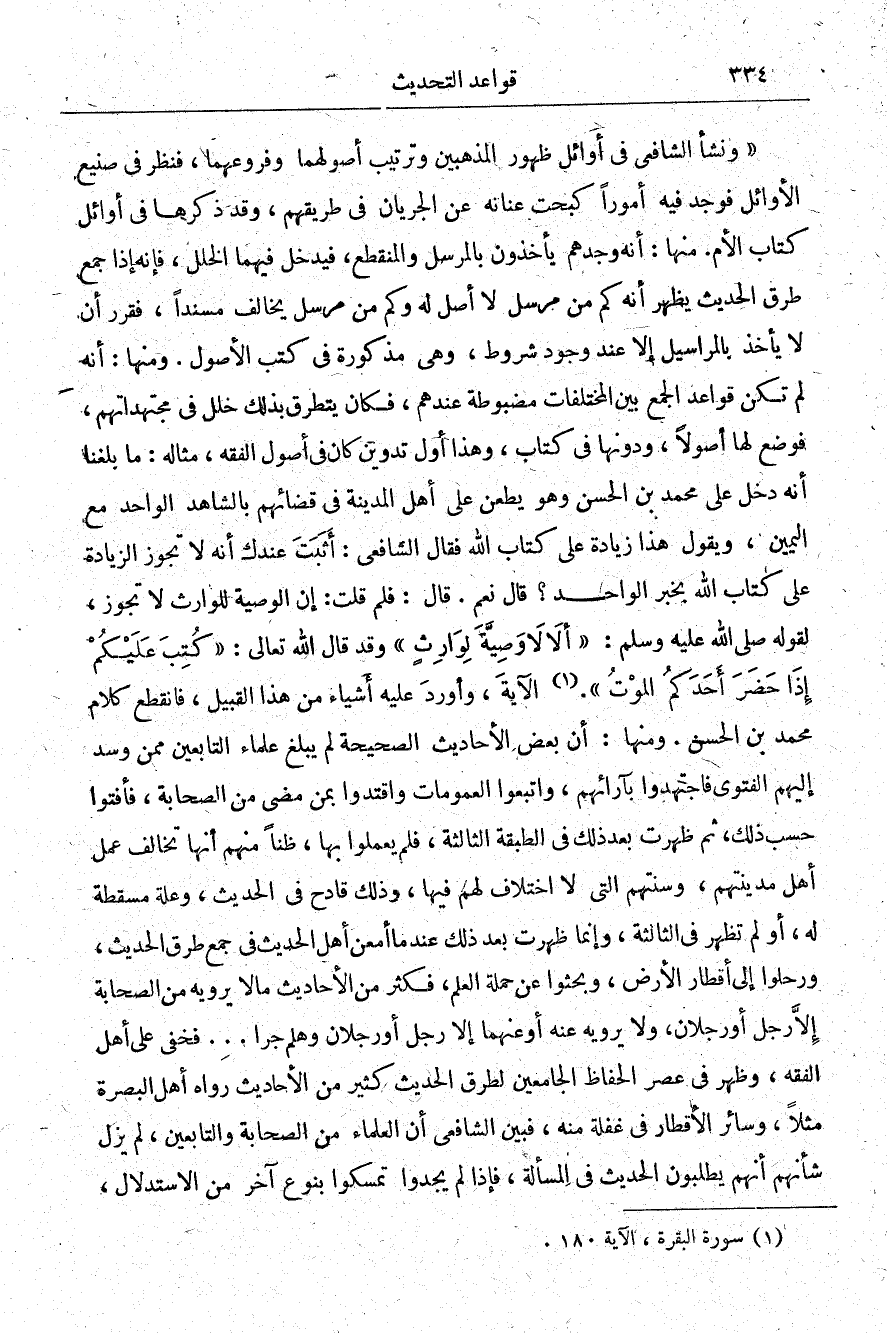 ٣٣٤
قواعد التحديث
« ونشأ الشافعى فى أوائل ظهور المذهبين وترتيب أصولهما وفروعهما ، فنظر فى صنيع
الأوائل فوجد فيه أموراً كبحت عنانه عن الجريان فى طريقهم ، وقد ذكرها فى أوائل
كتاب الأم. منها : أنه وجدهم يأخذون بالمرسل والمنقطع، فيدخل فيهما الخلل ، فإنه إذا جمع
طرق الحديث يظهر أنه كم من مرسل لا أصل له وكم من مرسل يخالف مسنداً ، فقرر أن
لا يأخذ بالمراسيل إلا عند وجود شروط ، وهى مذكورة فى كتب الأصول . ومنها : أنه
لم تكن قواعد الجمع بين المختلفات مضبوطة عندهم ، فكان يتطرق بذلك خلل فى مجتهداتهم ،
فوضع لها أصولاً ، ودونها فى كتاب ، وهذا أول تدوين كان فى أصول الفقه ، مثاله : ما بلغنا
أنه دخل على محمد بن الحسن وهو يطعن على أهل المدينة فى قضائهم بالشاهد الواحد مع
اليمين ، ويقول هذا زيادة على كتاب الله فقال الشافعى : أَثَبَتَ عندك أنه لا تجوز الزيادة
على كتاب الله بخبر الواحد ؟ قال نعم . قال : فلم قلت: إن الوصية للوارث لا تجوز ،
لقوله صلى الله عليه وسلم : « أَلَا لَا وَصِيَّةَ لِوَارِثٍ » وقد قال الله تعالى : « كُتِبَ عَلَيْكُمْ
إِذَا حَضَرَ أَحَدَكُمُ الموْتُ ».(١) الآيةَ ، وأوردَ عليه أشياء من هذا القبيل ، فانقطع كلام
محمد بن الحسن . ومنها : أن بعض الأحاديث الصحيحة لم يبلغ علماء التابعين ممن وسد
إليهم الفتوى فاجتهدوا بآرائهم ، واتبعوا العمومات واقتدوا بمن مضى من الصحابة ، فأفتوا
حسب ذلك، ثم ظهرت بعد ذلك فى الطبقة الثالثة ، فلم يعملوا بها ، ظناً منهم أنها تخالف عمل
أهل مدينتهم ، وسنتهم التى لا اختلاف لهم فيها ، وذلك قادح فى الحديث ، وعلة مسقطة
له ، أو لم تظهر فى الثالثة ، وإنما ظهرت بعد ذلك عندما أمعن أهل الحديث فى جمع طرق الحديث ،
ورحلوا إلى أقطار الأرض ، وبحثوا عن حملة العلم، فكثر من الأحاديث مالا يرويه من الصحابة
إلاَّ رجل أو رجلان، ولا يرويه عنه أو عنهما إلا رجل أو رجلان وهلم جرا . . . فخفى على أهل
الفقه ، وظهر فى عصر الحفاظ الجامعين لطرق الحديث كثير من الأحاديث رواه أهل البصرة
مثلاً ، وسائر الأقطار فى غفلة منه ، فبين الشافعى أن العلماء من الصحابة والتابعين ، لم يزل
شأنهم أنهم يطلبون الحديث فى المسألة ، فإذا لم يجدوا تمسكوا بنوع آخر من الاستدلال ،
(١) سورة البقرة ، الآية ١٨٠ .